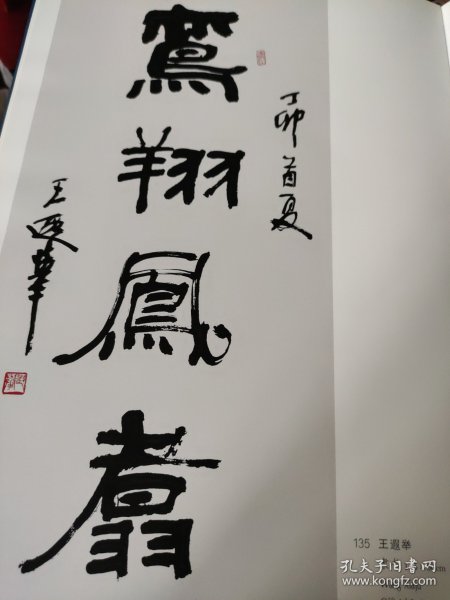 丁卯首夏
鸞翔鳳翥
王遐举
135 王遐举
孔夫子旧书网
www.kongfz.com